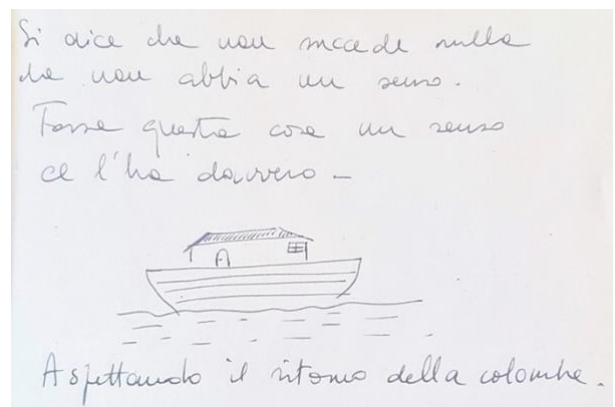 Si dice che non succede nulla
che non abbia un senso.
Forse questa cosa un senso
ce l'ha davvero -
Aspettando il ritorno della colomba.